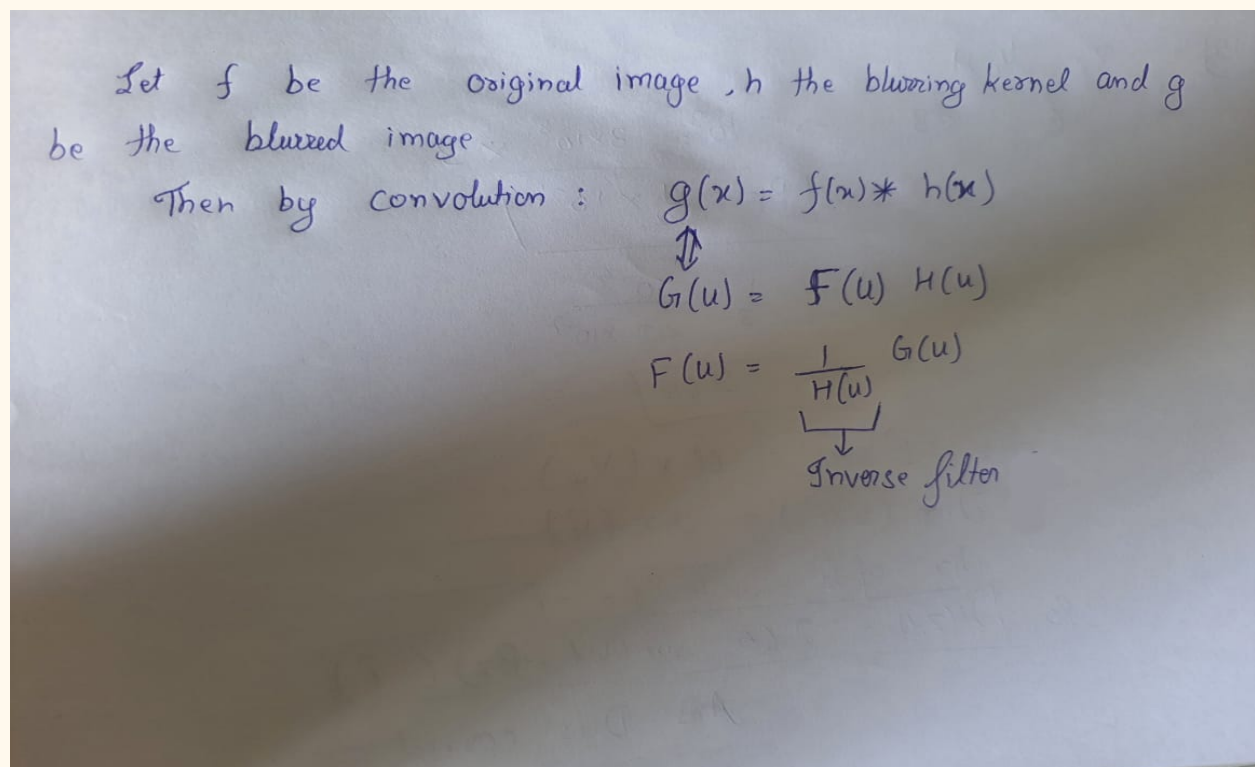 Let f be the original image, h the blurring kernel and g
be the blurred image
Then by convolution : g(x) = f(x) * h(x)
⇕
G(u) = F(u) H(u)
F(u) = 1/H(u) G(u)
Inverse filter